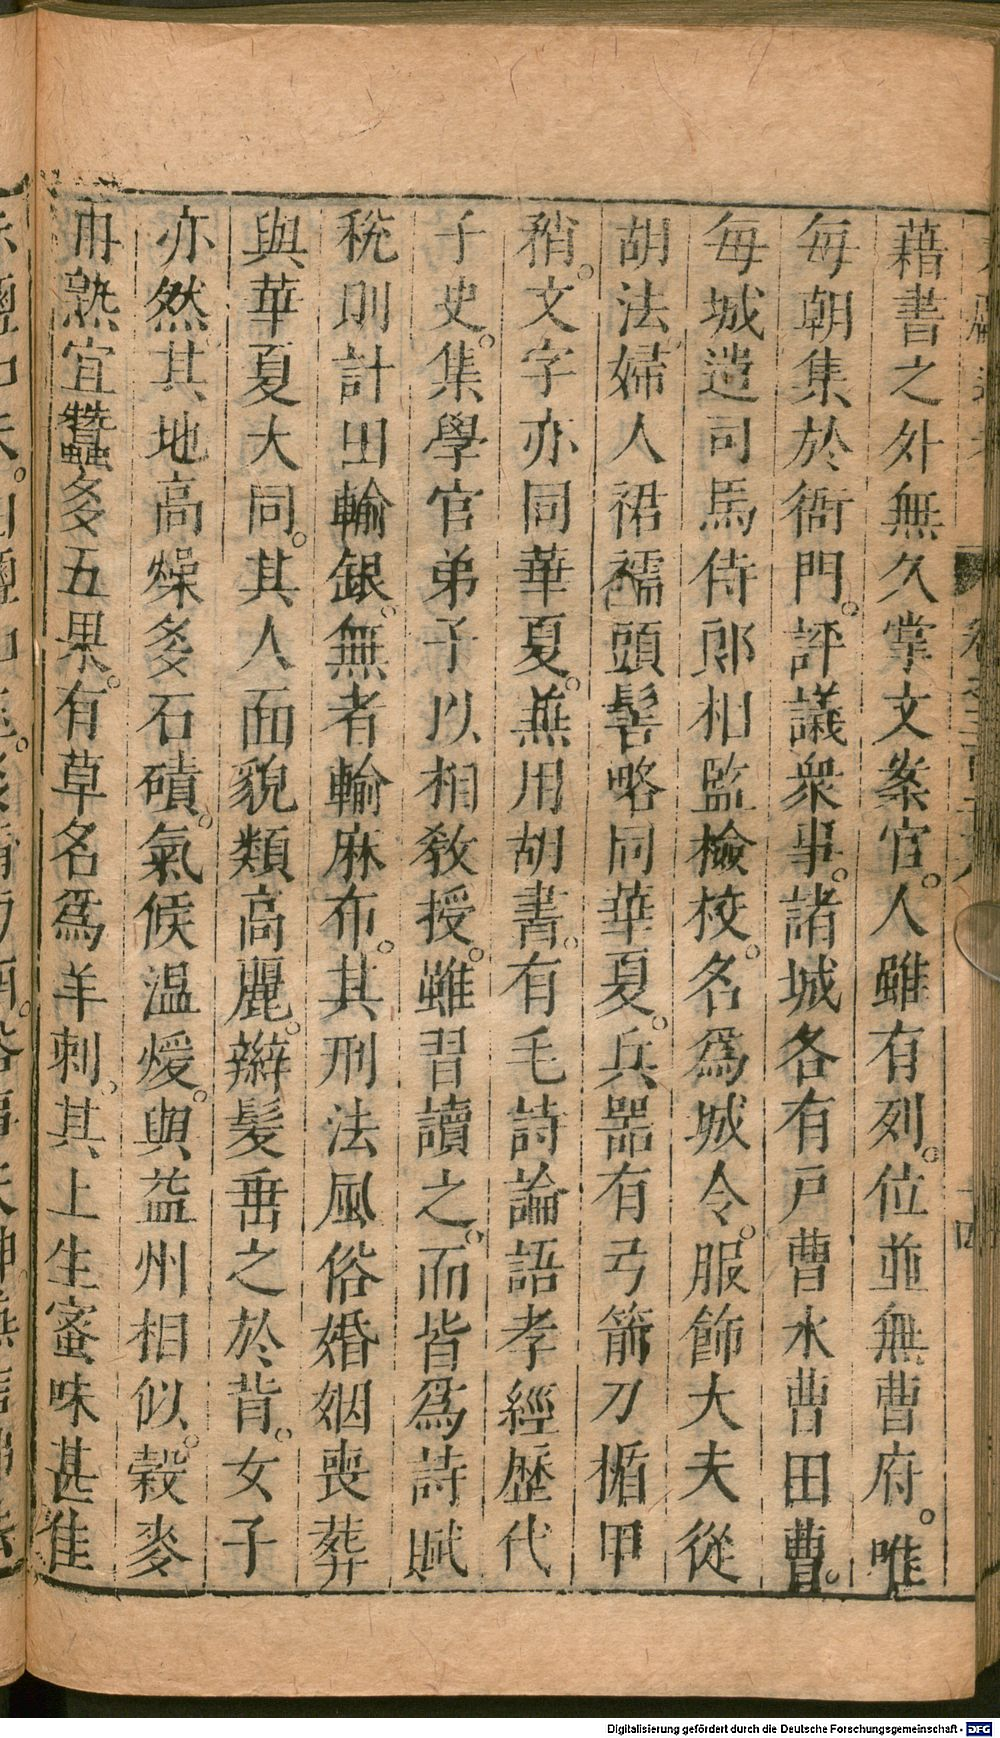 藉書之外無久掌文案官。人雖有列。位並無曹府。唯
每朝集於衙門。評議衆事。諸城各有戸曹水曹田曹。
每城遣司馬侍郎相監檢校。名爲城令。服飾大夫從
胡法。婦人裙襦頭髻略同華夏。兵噐有弓箭刀楯甲
矟。文字亦同華夏。兼用胡書。有毛詩論語孝經歷代
子史。集學官弟子以相敎授。雖習讀之。而皆爲詩賦
稅則計田輸銀。無者輸麻布。其刑法風俗婚姻喪葬
與華夏大同。其人面貌類高麗。辮髮垂之於背。女子
亦然。其地高燥多石磧。氣候温煖。與益州相似。穀麥
再熟宜蠶多五果。有草名爲羊刺。其上生蜜味甚佳
Digitalisierung gefördert durch die Deutsche Forschungsgemeinschaft - DFG